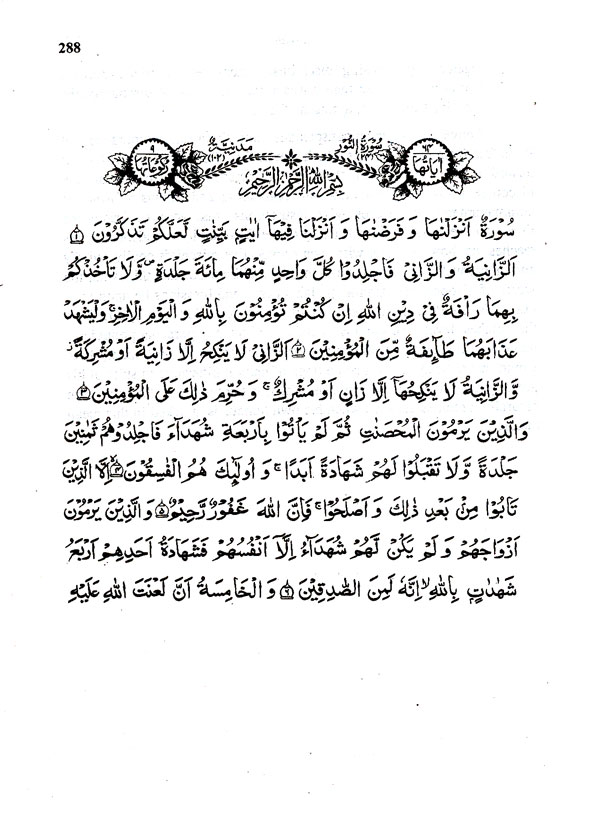 288
اٰیَاتُهَا ٦٤ سُوْرَةُ النُّوْرِ (٢٤) مَدَنِیَّةٌ (١٠٢) رُكُوْعَاتُهَا ٩
بِسْمِ اللّٰهِ الرَّحْمٰنِ الرَّحِیْمِ
سُوْرَةٌ اَنْزَلْنٰهَا وَ فَرَضْنٰهَا وَ اَنْزَلْنَا فِیْهَاۤ اٰیٰتٍۭ بَیِّنٰتٍ لَّعَلَّكُمْ تَذَكَّرُوْنَ ﴿١﴾
اَلزَّانِیَةُ وَ الزَّانِیْ فَاجْلِدُوْا كُلَّ وَاحِدٍ مِّنْهُمَا مِائَةَ جَلْدَةٍ ۪ وَّ لَا تَاْخُذْكُمْ
بِهِمَا رَاْفَةٌ فِیْ دِیْنِ اللّٰهِ اِنْ كُنْتُمْ تُؤْمِنُوْنَ بِاللّٰهِ وَ الْیَوْمِ الْاٰخِرِ ۚ وَ لْیَشْهَدْ
عَذَابَهُمَا طَآىِٕفَةٌ مِّنَ الْمُؤْمِنِیْنَ ﴿٢﴾ اَلزَّانِیْ لَا یَنْكِحُ اِلَّا زَانِیَةً اَوْ مُشْرِكَةً ؗ
وَّ الزَّانِیَةُ لَا یَنْكِحُهَاۤ اِلَّا زَانٍ اَوْ مُشْرِكٌ ۚ وَ حُرِّمَ ذٰلِكَ عَلَی الْمُؤْمِنِیْنَ ﴿٣﴾
وَ الَّذِیْنَ یَرْمُوْنَ الْمُحْصَنٰتِ ثُمَّ لَمْ یَاْتُوْا بِاَرْبَعَةِ شُهَدَآءَ فَاجْلِدُوْهُمْ ثَمٰنِیْنَ
جَلْدَةً وَّ لَا تَقْبَلُوْا لَهُمْ شَهَادَةً اَبَدًا ۚ وَ اُولٰٓىِٕكَ هُمُ الْفٰسِقُوْنَ ﴿٤﴾ اِلَّا الَّذِیْنَ
تَابُوْا مِنْۢ بَعْدِ ذٰلِكَ وَ اَصْلَحُوْا ۚ فَاِنَّ اللّٰهَ غَفُوْرٌ رَّحِیْمٌ ﴿٥﴾ وَ الَّذِیْنَ یَرْمُوْنَ
اَزْوَاجَهُمْ وَ لَمْ یَكُنْ لَّهُمْ شُهَدَآءُ اِلَّاۤ اَنْفُسُهُمْ فَشَهَادَةُ اَحَدِهِمْ اَرْبَعُ
شَهٰدٰتٍۭ بِاللّٰهِ ۙ اِنَّهٗ لَمِنَ الصّٰدِقِیْنَ ﴿٦﴾ وَ الْخَامِسَةُ اَنَّ لَعْنَتَ اللّٰهِ عَلَیْهِ